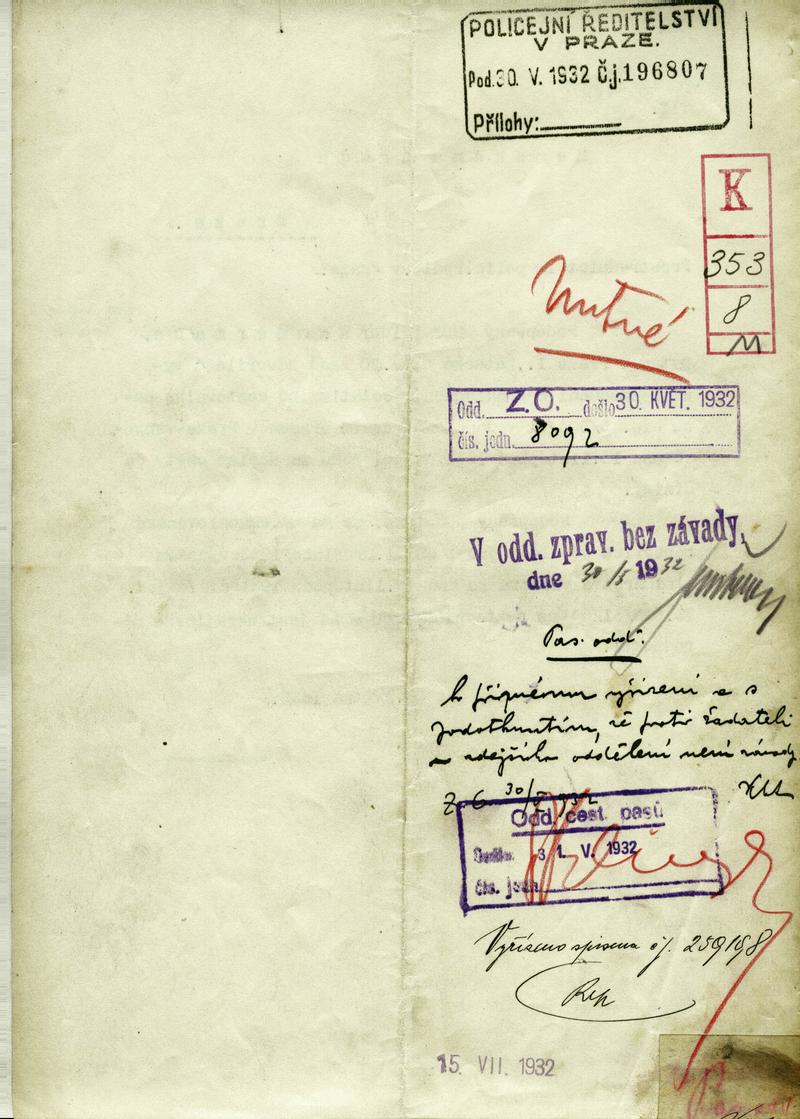 POLICEJNÍ ŘEDITELSTVÍ
V PRAZE.
Pod. 30. V. 1932 Č.j. 196807
Přílohy:
K
353
8
M
Nutné
Odd. Z.O. došlo 30. KVĚT. 1932
čís. jedn. 8092
V odd. zprav. bez závady,
dne 30/5 1932
Pas. odd.
k přípnému vyřízení a s
podotknutím, že proti žadateli
u zdejšího oddělení není závady
Z. O. 30/5 932
Odd. cest. pasů
Došlo: 31. V. 1932
čís. jedn.
Vyřízeno spisem čj. 259198
15. VII. 1932